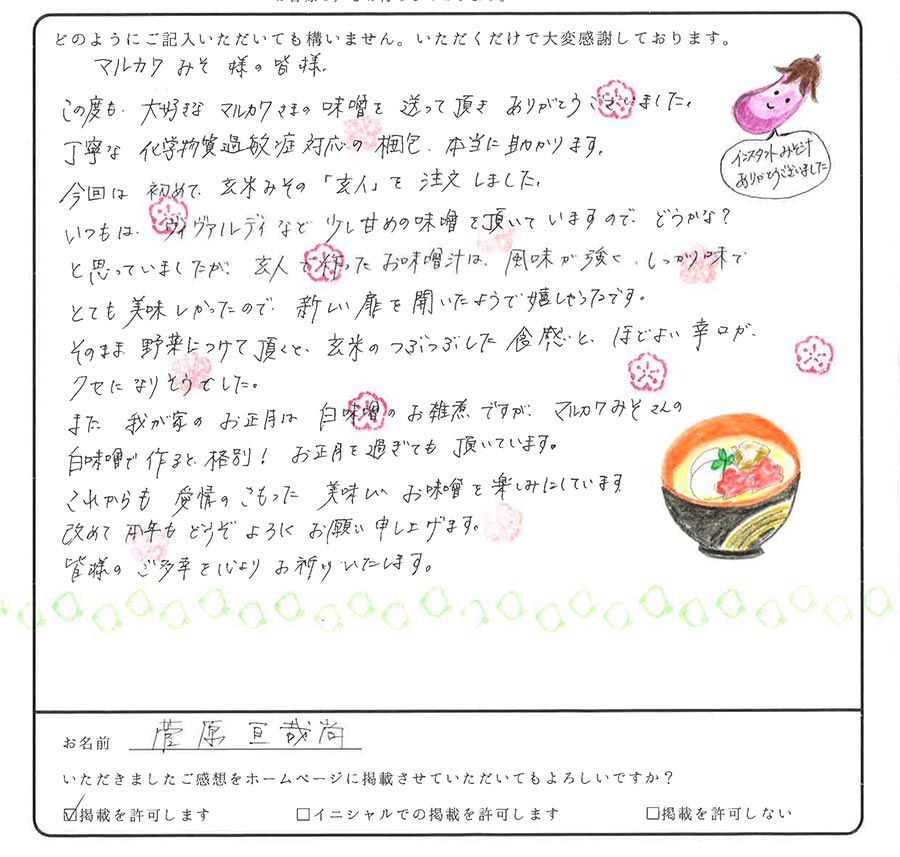 どのようにご記入いただいても構いません。いただくだけで大変感謝しております。
マルカワ みそ 様の皆様.
この度も、大好きな マルカワさまの 味噌を 送って頂き ありがとうございました。
丁寧な 化学物質過敏症対応の 梱包、本当に助かります。
今回は 初めて、玄米みその「玄人」を 注文しました。
いつもは、ヴィヴァルディなど 少し甘めの味噌を頂いていますので、どうかな?
と思っていましたが、玄人で作ったお味噌汁は、風味が強く、しっかり味で
とても美味しかったので、新しい扉を開いたようで嬉しかったです。
そのまま 野菜につけて頂くと、玄米のつぶつぶした食感と、ほどよい辛口が、
クセになりそうでした。
また 我が家の お正月は 白味噌のお雑煮ですが、マルカワみそさんの
白味噌で作ると、格別! お正月を過ぎても 頂いています。
これからも 愛情のこもった 美味しい お味噌を楽しみにしています
改めて 本年も どうぞ よろしく お願い申し上げます。
皆様の ご多幸を心より お祈りいたします。
インスタントみそ汁
ありがとうございました
お名前 菅原 宣哉尚
いただきましたご感想をホームページに掲載させていただいてもよろしいですか?
☑掲載を許可します □イニシャルでの掲載を許可します □掲載を許可しない